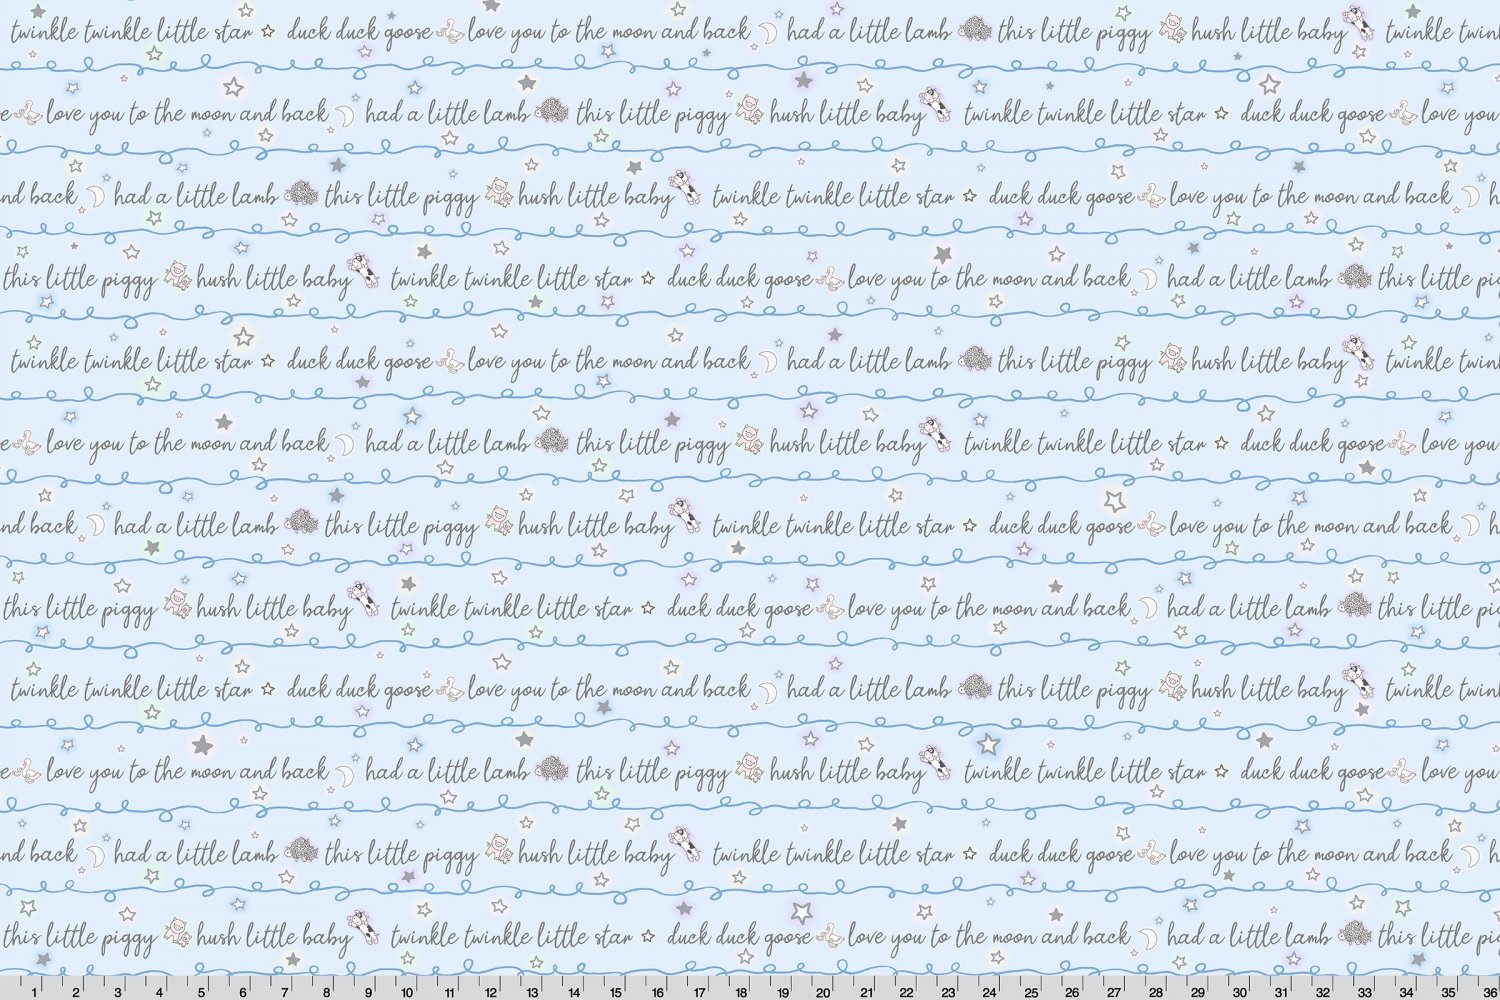 twinkle twinkle little star duck duck goose love you to the moon and back had a little lamb this little piggy hush little baby twinkle twin
e love you to the moon and back had a little lamb this little piggy hush little baby twinkle twinkle little star duck duck goose love you
nd back had a little lamb this little piggy hush little baby twinkle twinkle little star duck duck goose love you to the moon and back h
this little piggy hush little baby twinkle twinkle little star duck duck goose love you to the moon and back had a little lamb this little pi
twinkle twinkle little star duck duck goose love you to the moon and back had a little lamb this little piggy hush little baby twinkle twin
e love you to the moon and back had a little lamb this little piggy hush little baby twinkle twinkle little star duck duck goose love you
nd back had a little lamb this little piggy hush little baby twinkle twinkle little star duck duck goose love you to the moon and back h
this little piggy hush little baby twinkle twinkle little star duck duck goose love you to the moon and back had a little lamb this little pi
twinkle twinkle little star duck duck goose love you to the moon and back had a little lamb this little piggy hush little baby twinkle twin
e love you to the moon and back had a little lamb this little piggy hush little baby twinkle twinkle little star duck duck goose love you
nd back had a little lamb this little piggy hush little baby twinkle twinkle little star duck duck goose love you to the moon and back h
this little piggy hush little baby twinkle twinkle little star duck duck goose love you to the moon and back had a little lamb this little pi
1 2 3 4 5 6 7 8 9 10 11 12 13 14 15 16 17 18 19 20 21 22 23 24 25 26 27 28 29 30 31 32 33 34 35 36